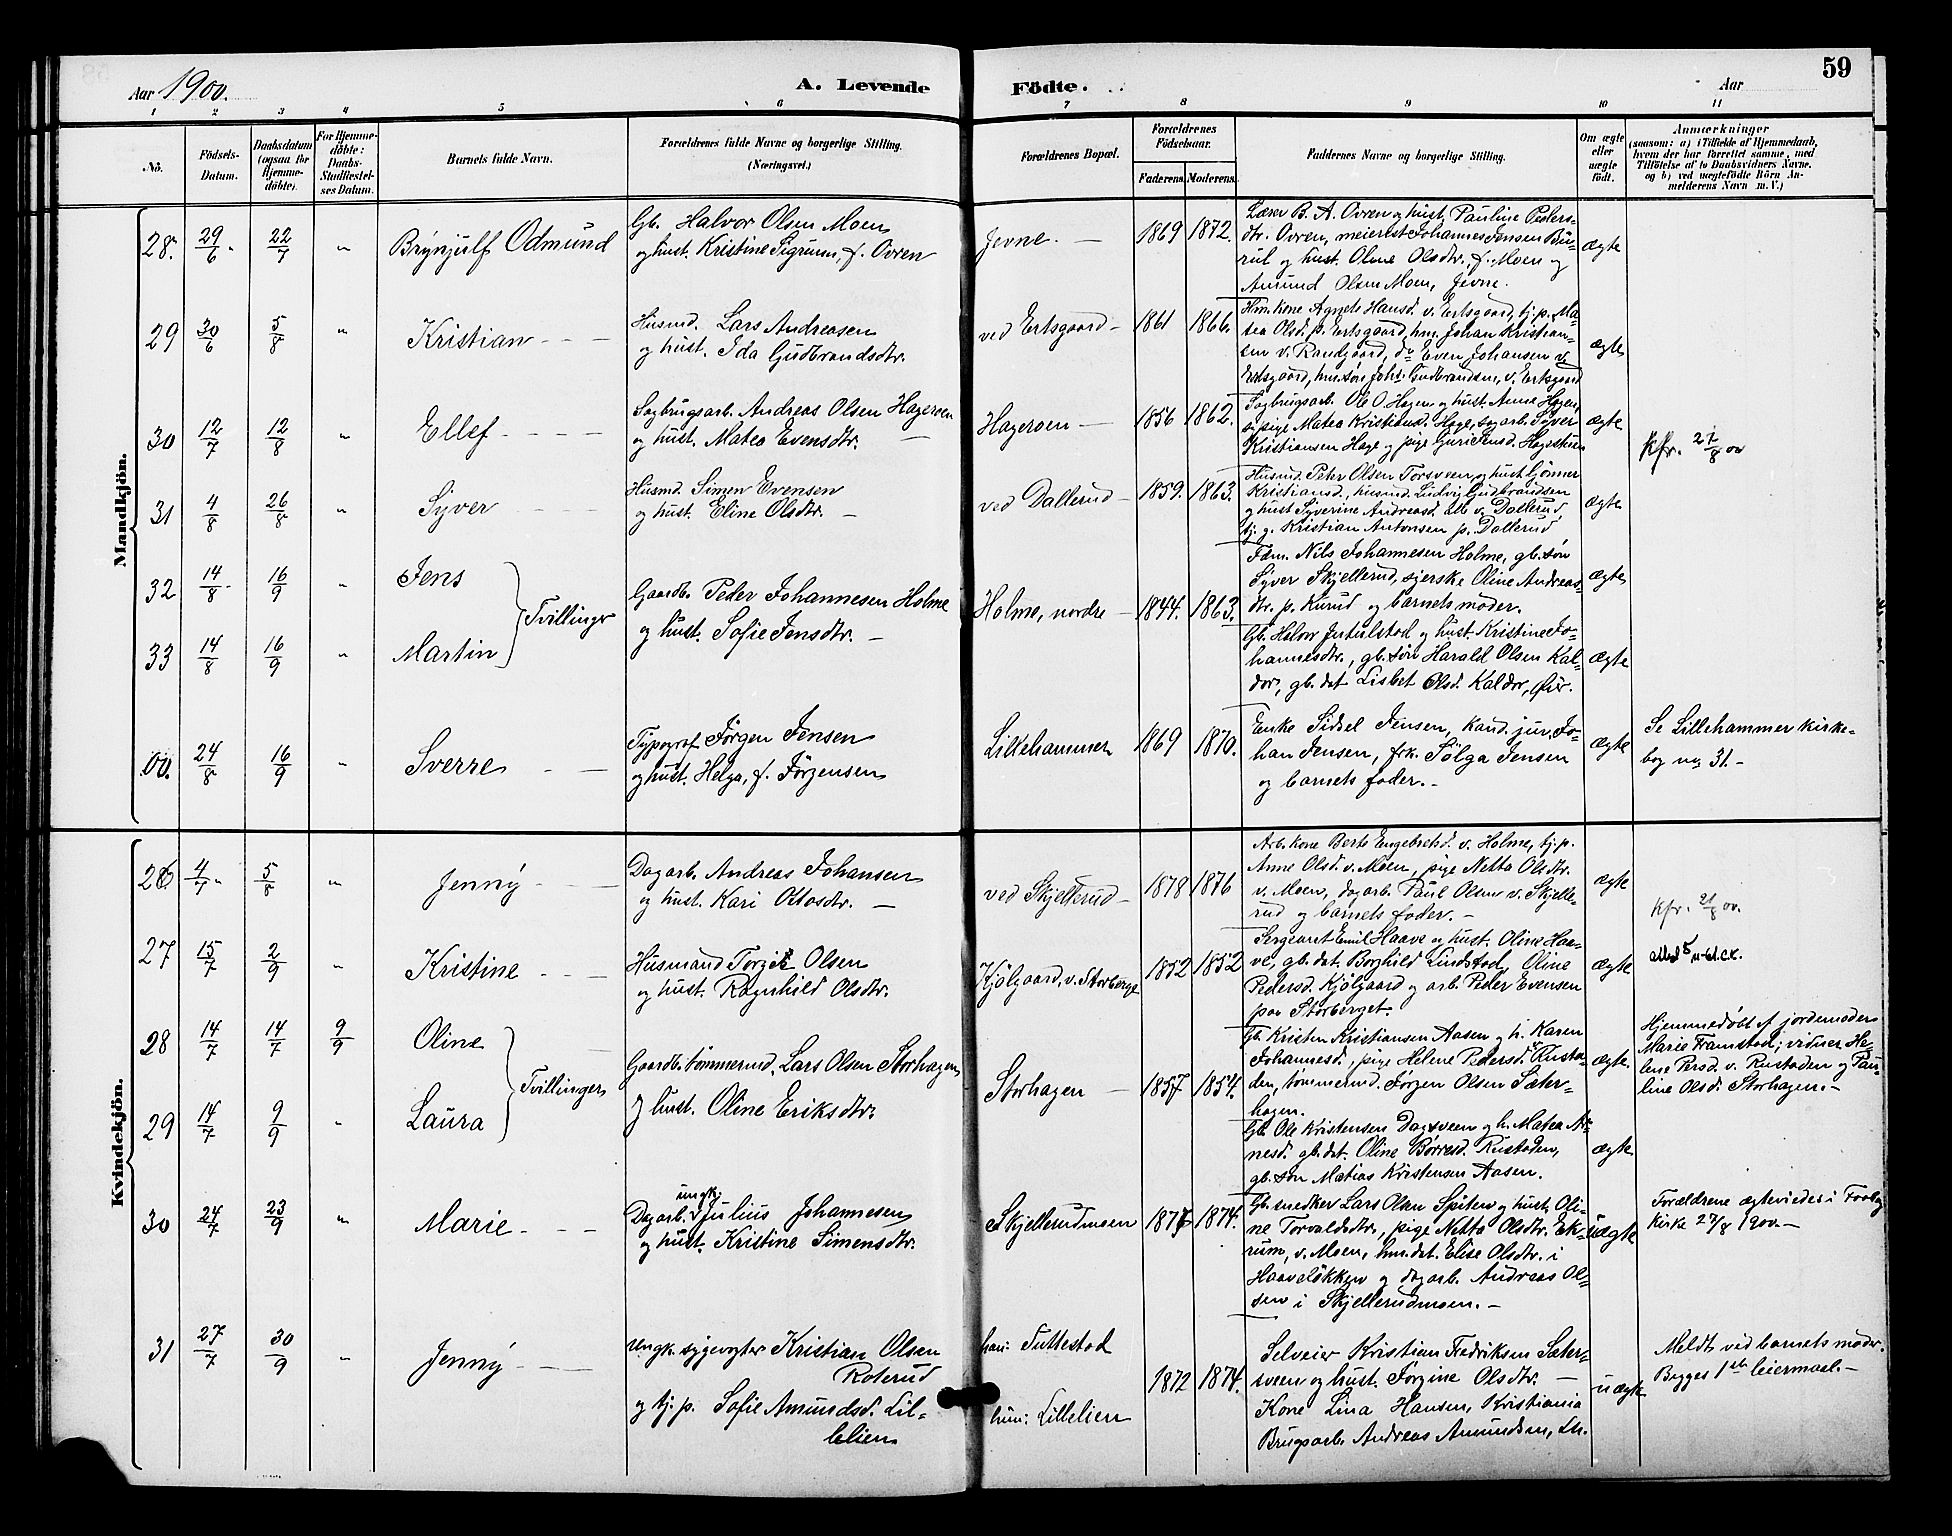 59
Aar 1900.
A. Levende Födte.
Aar
1 2 3 4 5 6 7 8 9 10 11
No.
Födsels-Datum.
Daabsdatum (ogsaa for Hjemmedöbte).
For Hjemmedöbte: Daabs-Stadfæstelses Datum.
Barnets fulde Navn.
Forældrenes fulde Navne og borgerlige Stilling.
(Næringsvei.)
Forældrenes Bopæl.
Forældrenes Födselsaar.
Faderens. Moderens.
Faddernes Navne og borgerlige Stilling.
Om ægte eller uægte födt.
Anmærkninger
(saasom: a) i Tilfælde af Hjemmedaab,
hvem der har forrettet samme, med
Tilföielse af to Daabsvidners Navne.
og b) ved uægtefödte Börn An-
melderens Navn m. V.)
Mandkjön.
28. 29/6 22/7 " Brynjulf Odmund
Gb. Halvor Olsen Moen
og hust. Kristine Sigrum, f. Ovren
Jevne. 1869 1872.
Læser B. A. Ovren og hust. Pauline Peders-
dtr. Ovren, meierist Johannes Jensen Bu-
rul og hust. Oline Olsdtr. f. Moen og
Amund Olsen Moen, Jevne.
ægte
29 30/6 5/8 " Kristian
Husmd. Lars Andreasen
og hust. Ida Gudbrandsdtr.
ved Ertsgaard 1861 1866.
Hm. kone Agnete Hansd. v. Ertsgaard, tj.p. Ma-
tea Olsd. p. Ertsgaard, hm. Johan Kristian-
sen v. Randgaard, do Even Johansen v.
Ertsgaard, hm. søn Johs. Gudbrandsen, v. Ertsgaard
ægte
30 12/7 12/8 " Ellef
Sagbrugsarb. Andreas Olsen Hageroen
og hust. Matea Evensdtr.
Hageroen 1856 1862.
Sagbrugsarb. Ole O. Hagen og hust. Anne Hagen,
pige Matea Kristiansd. Hage, sagarb. Syver
Kristiansen Hage og pige Guri Jensd. Hagestuen
ægte
kfr. 21/8 00
31 4/8 26/8 " Syver
Husmd. Simen Evensen
og hust. Eline Olsdtr.
ved Dallerud 1859. 1863.
Husmd. Peter Olsen Torsveen og hust. Gjønner
Kristiansd., husmd. Ludvig Gudbrandsen
og hust. Syverine Andreasd. alle v. Dallerud
tj. g. Kristian Antonsen p. Dallerud
ægte
32 14/8 16/9 " Jens
33 14/8 16/9 " Martin
Tvillinger
Gaardb. Peder Johannesen Holme
og hust. Sofie Jensdtr.
Holme, nordre 1844. 1863.
Fdm. Nils Johannesen Holme, gb. søn
Syver Skjellerud, sjerske Oline Andreas-
dtr. p. Kurud og barnets moder.
ægte
Gb. Helvor Jutulstad og hust. Kristine Jo-
hannesdtr., gb. søn Harald Olsen Kal-
dor, gb. dat. Lisbet Olsd. Kaldor, Øier.
ægte
00. 24/8 16/9 " Sverre
Typograf Jørgen Jensen
og hust. Helga, f. Jørgensen
Lillehammer 1869 1870.
Enke Sidsel Jensen, kand. jur. Jo-
han Jensen, frk. Solga Jensen
og barnets fader.
ægte
Se Lillehammer kirke-
bog no 31.
Kvindekjön.
26 4/7 5/8 " Jenny
Dagarb. Andreas Johansen
og hust. Kari Ottosdtr.
ved Skjellerud 1878 1876
Arb. kone Berte Engebretsd. v. Holme, tj.p.
Anne Olsd. v. Moen, pige Netta Olsdtr.
v. Moen, dagarb. Paul Olsen v. Skjelle-
rud og barnets fader.
ægte
kfr. 21/8 00.
27 15/7 2/9 " Kristine
Husmand Torger Olsen
og hust. Ragnhild Olsdtr.
Kjølgaard, v. Storberge 1852 1852
Sergeant Emil Haave og hust. Oline Haa-
ve, gb. dat. Borghild Lindstad, Oline
Pedersd. Kjølgaard og arb. Peder Evensen
paa Storberget.
ægte
28 14/7 14/7 9/9 Oline
29 14/7 9/9 " Laura
Tvillinger
Gaardb. tømmermd. Lars Olsen Storhagen
og hust. Oline Eriksdtr.
Storhagen 1857 1854.
Gb. Kristen Kristiansen Aasen og h. Karen
Johannesd., pige Helene Pedersd. Rusta-
den, tømmermd. Jørgen Olsen Sæter-
hagen.
ægte.
Hjemmedøbt af jordemoder
Marie Framstad; vidner He-
lene Persd. v. Rustaden og Pau-
line Olsd. Storhagen.
Gb. Ole Kristensen Dagsveen og h. Matea Ar-
nesd. gb. dat. Oline Børresd. Rustaden,
gb. søn Matias Kristensen Aasen.
ægte
30 24/7 23/9 " Marie
Dagarb. ungk. Julius Johannesen
og hust. Kristine Simensdtr.
Skjellerudmoen 1877 1874.
Gb. snedker Lars Olsen Spiten og hust. Oli-
ne Torvaldsdtr., pige Netta Olsdtr. Ek-
rum, v. Moen, hm. dat. Elise Olsdtr. i
Haaveløkken og dagarb. Andreas Ol-
sen i Skjellerudmoen.
uægte
Forældrene ægteviedes i Faaberg
kirke 27/8 1900.
31 27/7 30/9 " Jenny
Ungk. sygevogter Kristian Olsen
Roterud
og tj. p. Sofie Amundsd. Lil-
lelien
han: Tuttestad
hun: Lillelien
1872 1874.
Selveier Kristian Fredriksen Sæter-
sveen og hust. Jørgine Olsdtr.
Kone Lina Hansen, Kristiania
Brugsarb. Andreas Amundsen, Lh.
uægte
Meldt ved barnets moder.
Begges 1ste leiermaal.